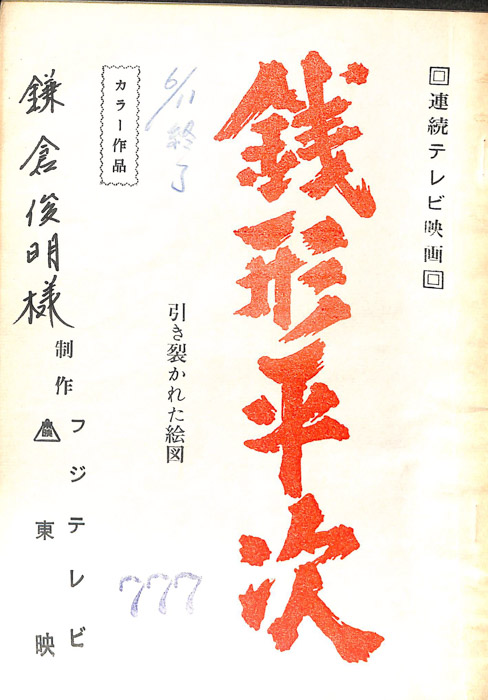 回連続テレビ映画回
銭形平次
6/11終了
引き裂かれた絵図
777
カラー作品
鎌倉俊明様
制作
フジテレビ
東映